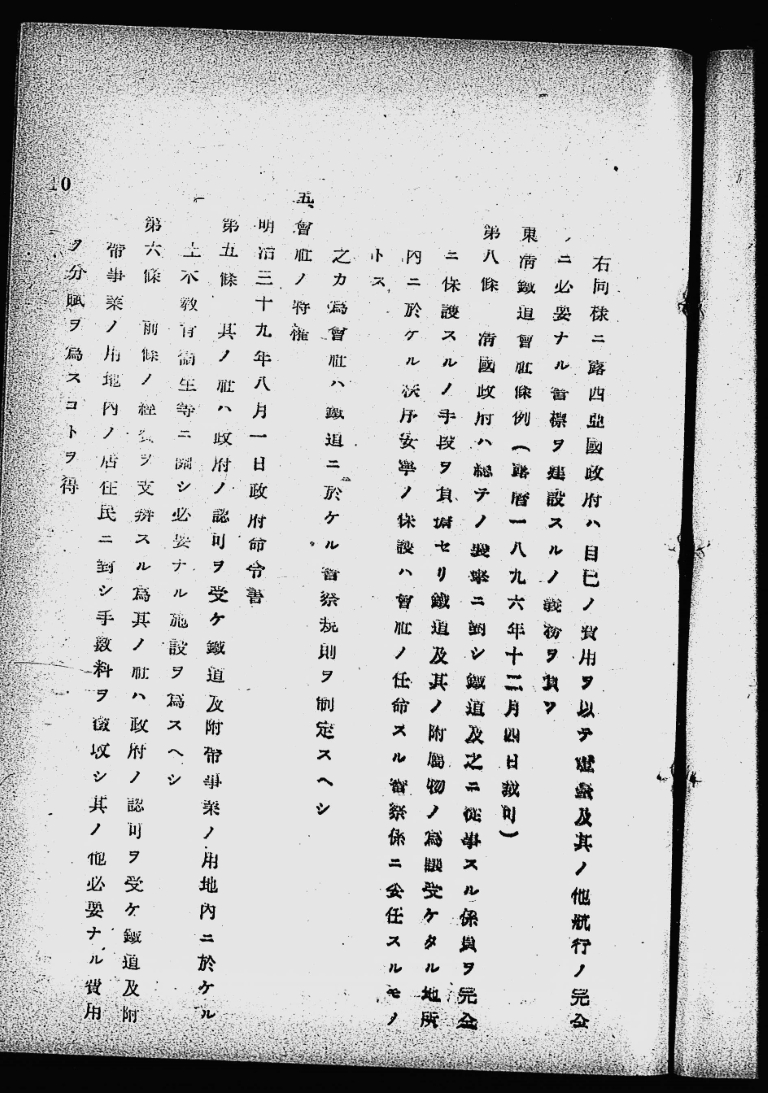 右同樣ニ露西亞國政府ハ自己ノ費用ヲ以テ燈臺及其ノ他航行ノ完全
ニ必要ナル警標ヲ建設スルノ義務ヲ負フ
東淸鐵道會社條例（露曆一八九六年十二月四日裁可）
第八條 淸國政府ハ總テノ襲來ニ對シ鐵道及之ニ從事スル係員ヲ完全
ニ保護スルノ手段ヲ負擔セリ鐵道及其ノ附屬物ノ爲讓受ケタル地所
內ニ於ケル秩序安寧ノ保護ハ會社ノ任命スル警察係ニ委任スルモノ
トス
之カ爲會社ハ鐵道ニ於ケル警察規則ヲ制定スヘシ
五、會社ノ特權
明治三十九年八月一日政府命令書
第五條 其ノ社ハ政府ノ認可ヲ受ケ鐵道及附帶事業ノ用地內ニ於ケル
土木敎育衞生等ニ關シ必要ナル施設ヲ爲スヘシ
第六條 前條ノ經費ヲ支辨スル爲其ノ社ハ政府ノ認可ヲ受ケ鐵道及附
帶事業ノ用地內ノ居住民ニ對シ手數料ヲ徵收シ其ノ他必要ナル費用
ヲ分賦ヲ爲スコトヲ得
10